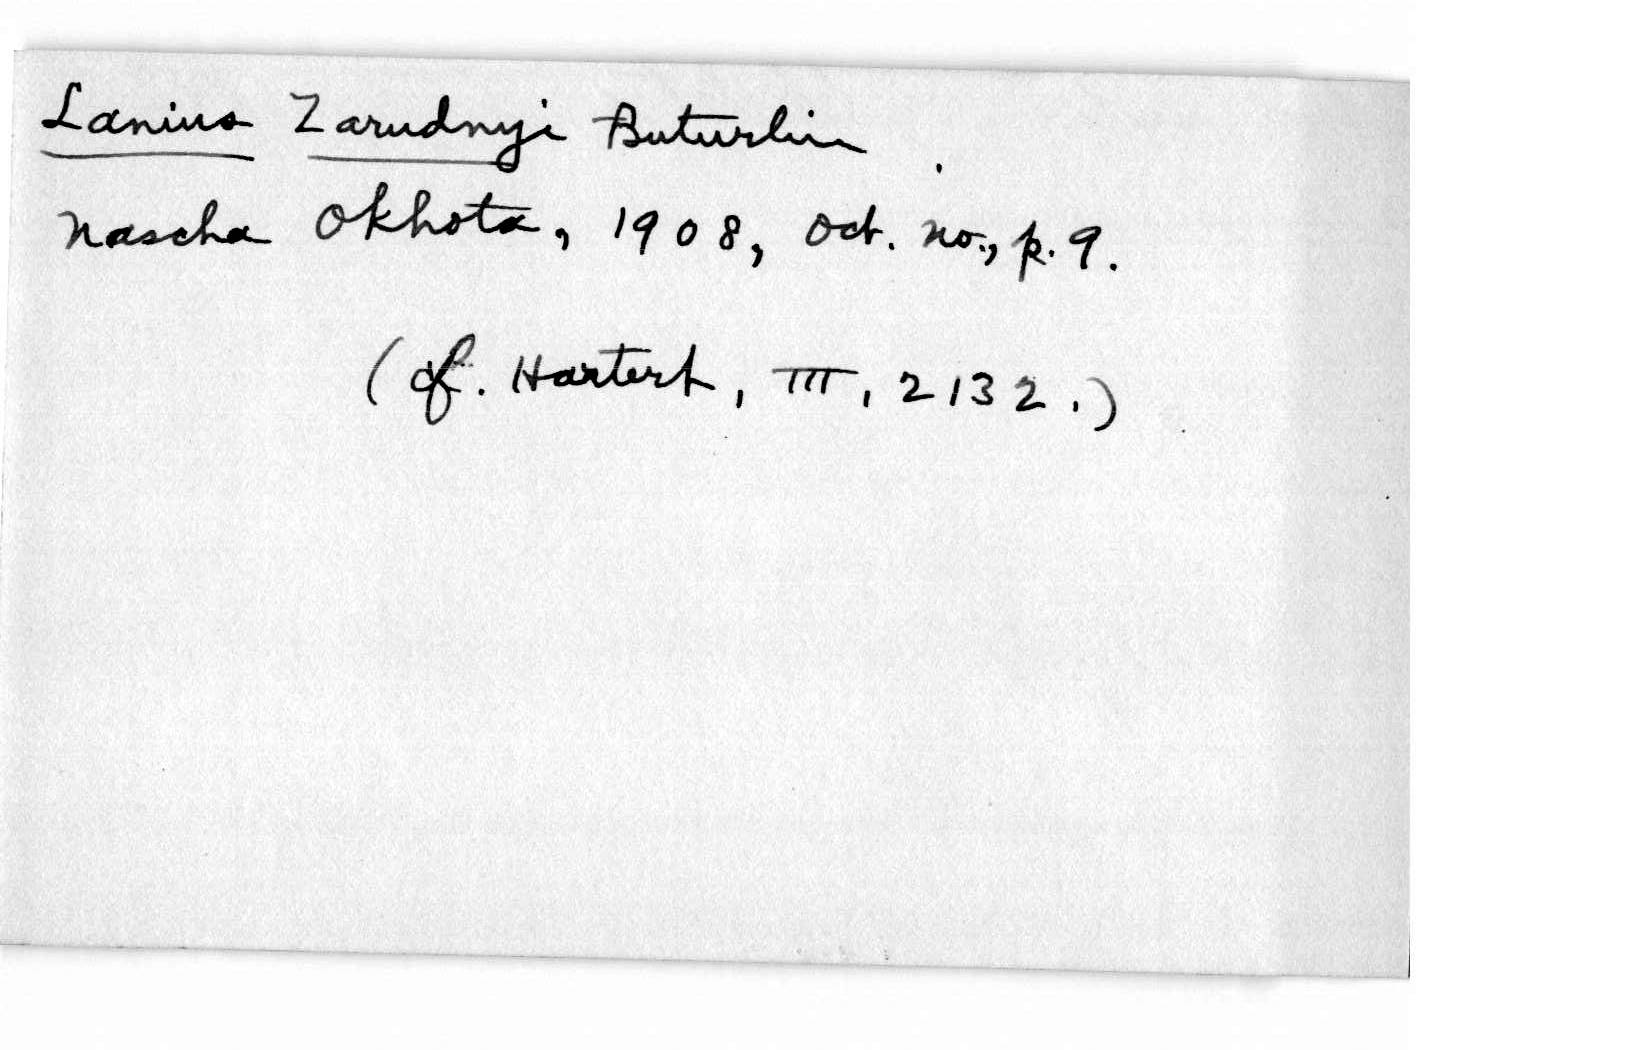 Lanius Zarudnyi Buturlin
Nascha Okhota, 1908, Oct. no., p. 9.
(cf. Hartert, III, 2132.)